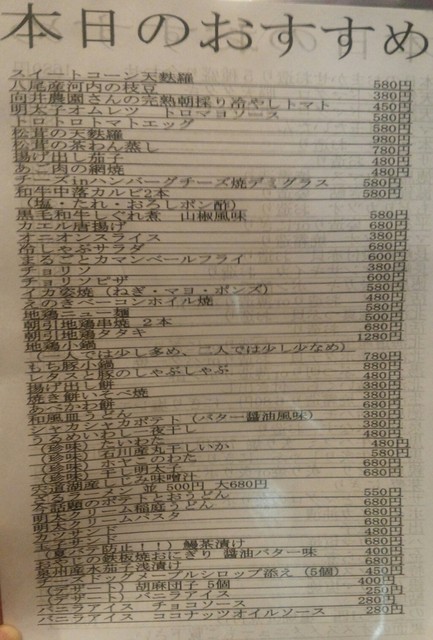 本日のおすすめ
スイートコーン天麩羅 580円
八尾産河内の枝豆 380円
向井農園さんの完熟朝採り冷やしトマト 450円
明太子オムレツ トロマヨソース 580円
トロトロトマトエッグ 580円
松茸の天麩羅 980円
松茸の茶わん蒸し 780円
揚げ出し茄子 480円
あご肉の網焼 480円
チーズinハンバーグチーズ焼デミグラス 580円
和牛中落カルビ2本 580円
(塩・たれ・おろしポン酢)
黒毛和牛しぐれ煮 山椒風味 580円
カエル唐揚げ 680円
オニオンスライス 380円
冷しゃぶサラダ 680円
まるごとカマンベールフライ 600円
チョリソ 380円
チョリソピザ 600円
イカ姿焼(ねぎ・マヨ・ポンズ) 580円
えのきベーコンホイル焼 480円
地鶏ニュー麺 500円
朝引地鶏串焼 2本 680円
朝引地鶏タタキ 1280円
地鶏小鍋
(一人では少し多め、二人では少し少なめ) 780円
もち豚小鍋 880円
レタスと豚のしゃぶしゃぶ 480円
揚げ出し餅 380円
焼き餅いそべ焼 380円
あごかわ餅 680円
和風皿うどん
シャカシャカポテト(バター醤油風味) 380円
うるめいわし一夜干し 380円
(珍味) たいわた 480円
(珍味) 石川産丸干しいか 580円
(珍味) ホヤ このわた 680円
(珍味) 干し明太子 680円
宍道湖産しじみ味噌汁
並 500円 大680円
550円
680円
明太クリームパスタ 680円
カツサンド 480円
(夏バテ防止!!) 鰻茶漬け 680円
鉄板焼おにぎり 醤油バター味 400円
泉州産水茄子浅漬け 680円
チーズドッグメープルシロップ添え (5個) 450円
(デザート) 胡麻団子 5個 400円
(デザート) バニラアイス 250円
バニラアイス チョコソース 280円
バニラアイス ココナッツオイルソース 280円